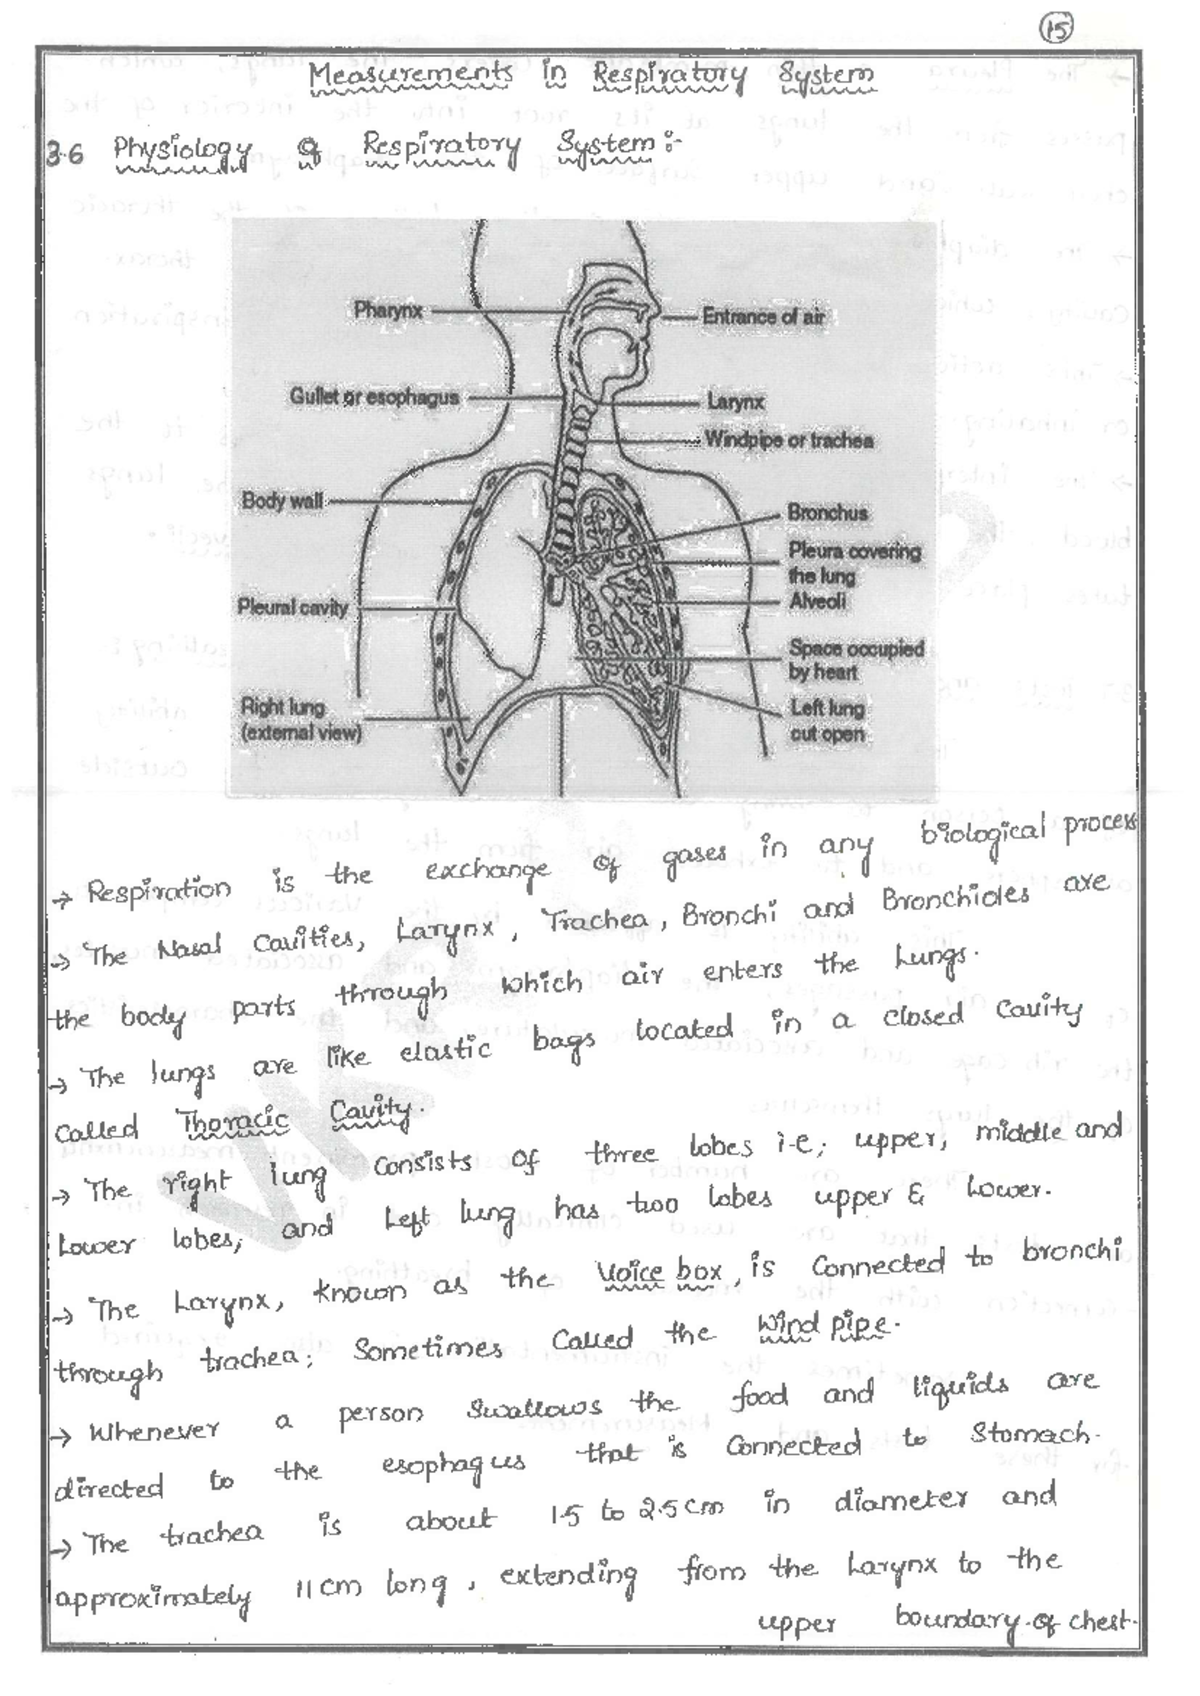 15
Measurements in Respiratory System
3.6 Physiology of Respiratory System :-
Pharynx
Entrance of air
Gullet or esophagus
Larynx
Windpipe or trachea
Body wall
Bronchus
Pleura covering
the lung
Alveoli
Pleural cavity
Space occupied
by heart
Right lung
(external view)
Left lung
cut open
→ Respiration is the exchange of gases in any biological process
→ The Nasal Cavities, Larynx, Trachea, Bronchi and Bronchioles are
the body parts through which air enters the Lungs.
→ The lungs are like elastic bags located in a closed Cavity
Called Thoracic Cavity.
→ The right lung Consists of three lobes i.e; upper, middle and
Lower lobes, and Left lung has two lobes upper & Lower.
→ The Larynx, known as the Voice box, is Connected to bronchi
through trachea; Sometimes Called the Wind pipe.
→ Whenever a person Swallows the food and liquids are
directed to the esophagus that is Connected to Stomach.
→ The trachea is about 1.5 to 2.5 cm in diameter and
approximately 11 cm long, extending from the Larynx to the
upper boundary of chest.